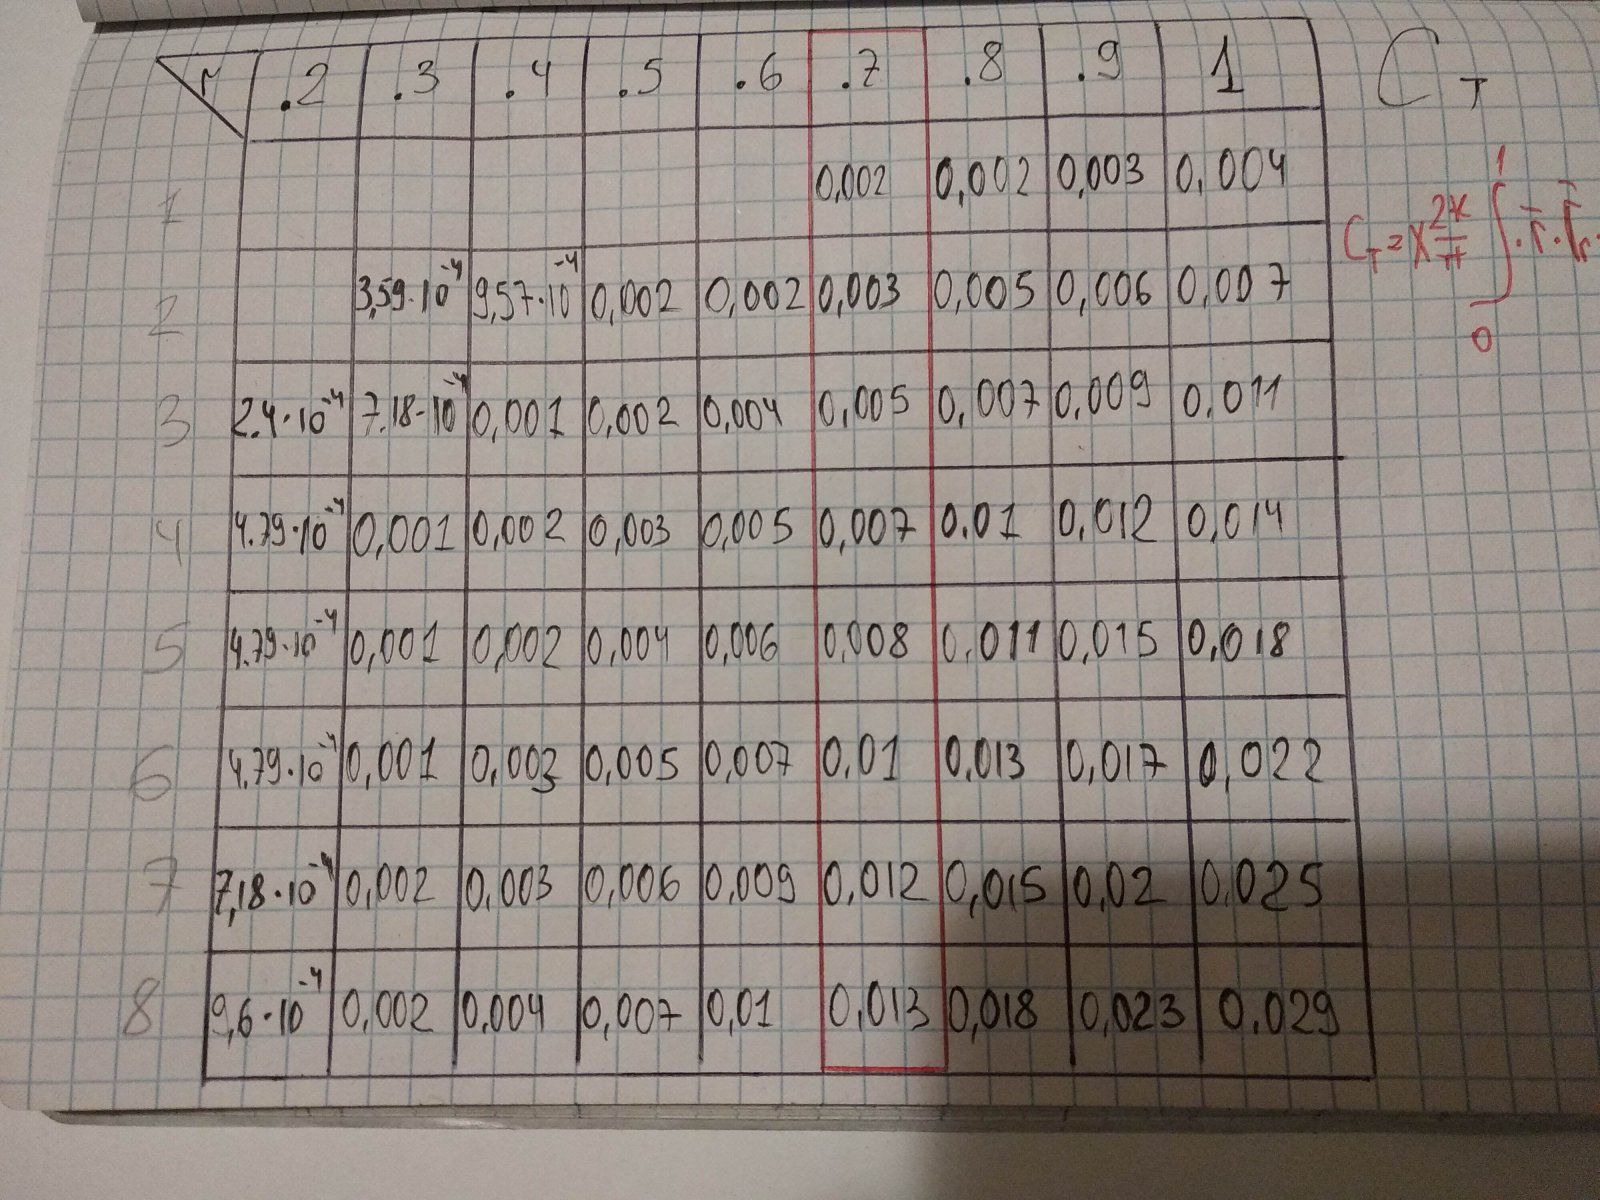 r .2 .3 .4 .5 .6 .7 .8 .9 1
C_T
1 0,002 0,002 0,003 0,004
2 3,59·10⁻⁴ 9,57·10⁻⁴ 0,002 0,002 0,003 0,005 0,006 0,007
3 2.4·10⁻⁴ 7.18·10⁻⁴ 0,001 0,002 0,004 0,005 0,007 0,009 0.011
4 4.79·10⁻⁴ 0,001 0,002 0,003 0,005 0,007 0.01 0,012 0,014
5 4.79·10⁻⁴ 0,001 0,002 0,004 0,006 0,008 0.011 0,015 0,018
6 4.79·10⁻⁴ 0,001 0,003 0,005 0,007 0,01 0,013 0,017 0,022
7 7,18·10⁻⁴ 0,002 0,003 0,006 0,009 0,012 0,015 0,02 0.025
8 9,6·10⁻⁴ 0,002 0,004 0,007 0,01 0,013 0,018 0,023 0.029